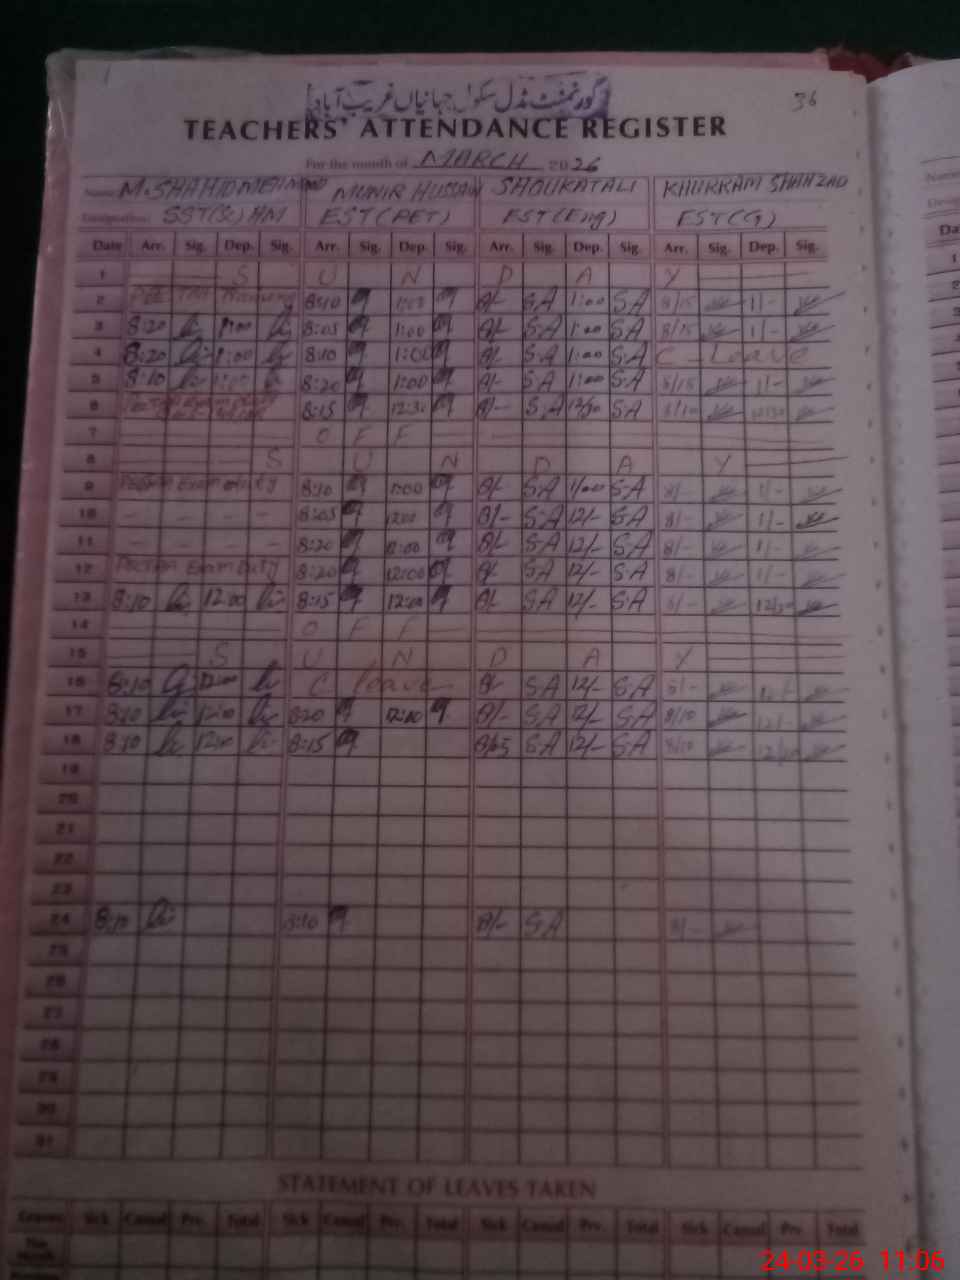 36
گورنمنٹ مڈل سکول جہانیاں غریب آباد
TEACHERS' ATTENDANCE REGISTER
For the month of MARCH 2026
Name M.SHAHID MEHMOOD MUNIR HUSSAIN SHOUKAT ALI KHURRAM SHAHZAD
Designation SST(Sc) HM EST(PET) EST(Eng) EST(G)
Date Arr. Sig. Dep. Sig. Arr. Sig. Dep. Sig. Arr. Sig. Dep. Sig. Arr. Sig. Dep. Sig.
1 S U N D A Y
2 Training 8:10 8/- SA 1:00 SA 8/15 1/-
3 8:20 1:00 8:05 1:00 8/- SA 1:00 SA 8/15 1/-
4 8:20 1:00 8:10 1:00 8/- SA 1:00 SA C-Leave
5 8:10 1:00 8:20 1:00 8/- SA 1:00 SA 8/15 1/-
6 8:15 12:30 8/- SA 12/30 SA 8/10 12/30
7 O F F
8 S U N D A Y
9 Exam duty 8:10 1:00 8/- SA 1/00 SA 8/- 1/-
10 - - - - 8:05 12:00 8/- SA 12/- SA 8/- 1/-
11 - - - - 8:20 8/- SA 12/- SA 8/- 1/-
12 Exam Duty 8:20 12:00 8/- SA 12/- SA 8/- 1/-
13 8:10 12:00 8:15 12:00 8/- SA 12/- SA 8/- 12/30
14 O F F
15 S U N D A Y
16 8:10 12:00 C leave 8/- SA 12/- SA 8/- 12/-
17 8:10 12:00 8:20 12:00 8/- SA 12/- SA 8/10 12/-
18 8:10 12:00 8:15 8/05 SA 12/- SA 8/10
19
20
21
22
23
24 8:10 8:10 8/- SA 8/-
25
26
27
28
29
30
31
STATEMENT OF LEAVES TAKEN
Leaves Sick Casual Prv. Total Sick Casual Prv. Total Sick Casual Prv. Total Sick Casual Prv. Total
This Month
24-03-26 11:06